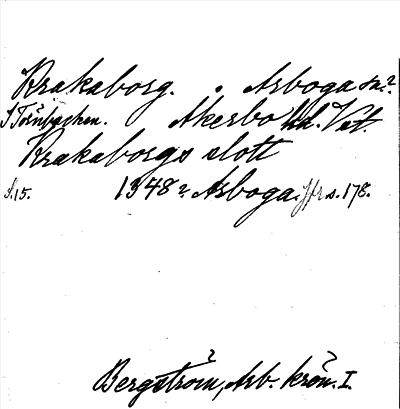 Krakaborg. . Arboga sn?
I Törnbacken. Åkerbo hd. Vstl.
Krakaborgs slott
s.15. 1348? Arboga. Jfr s. 178.
Bergström, Arb. krön. I.